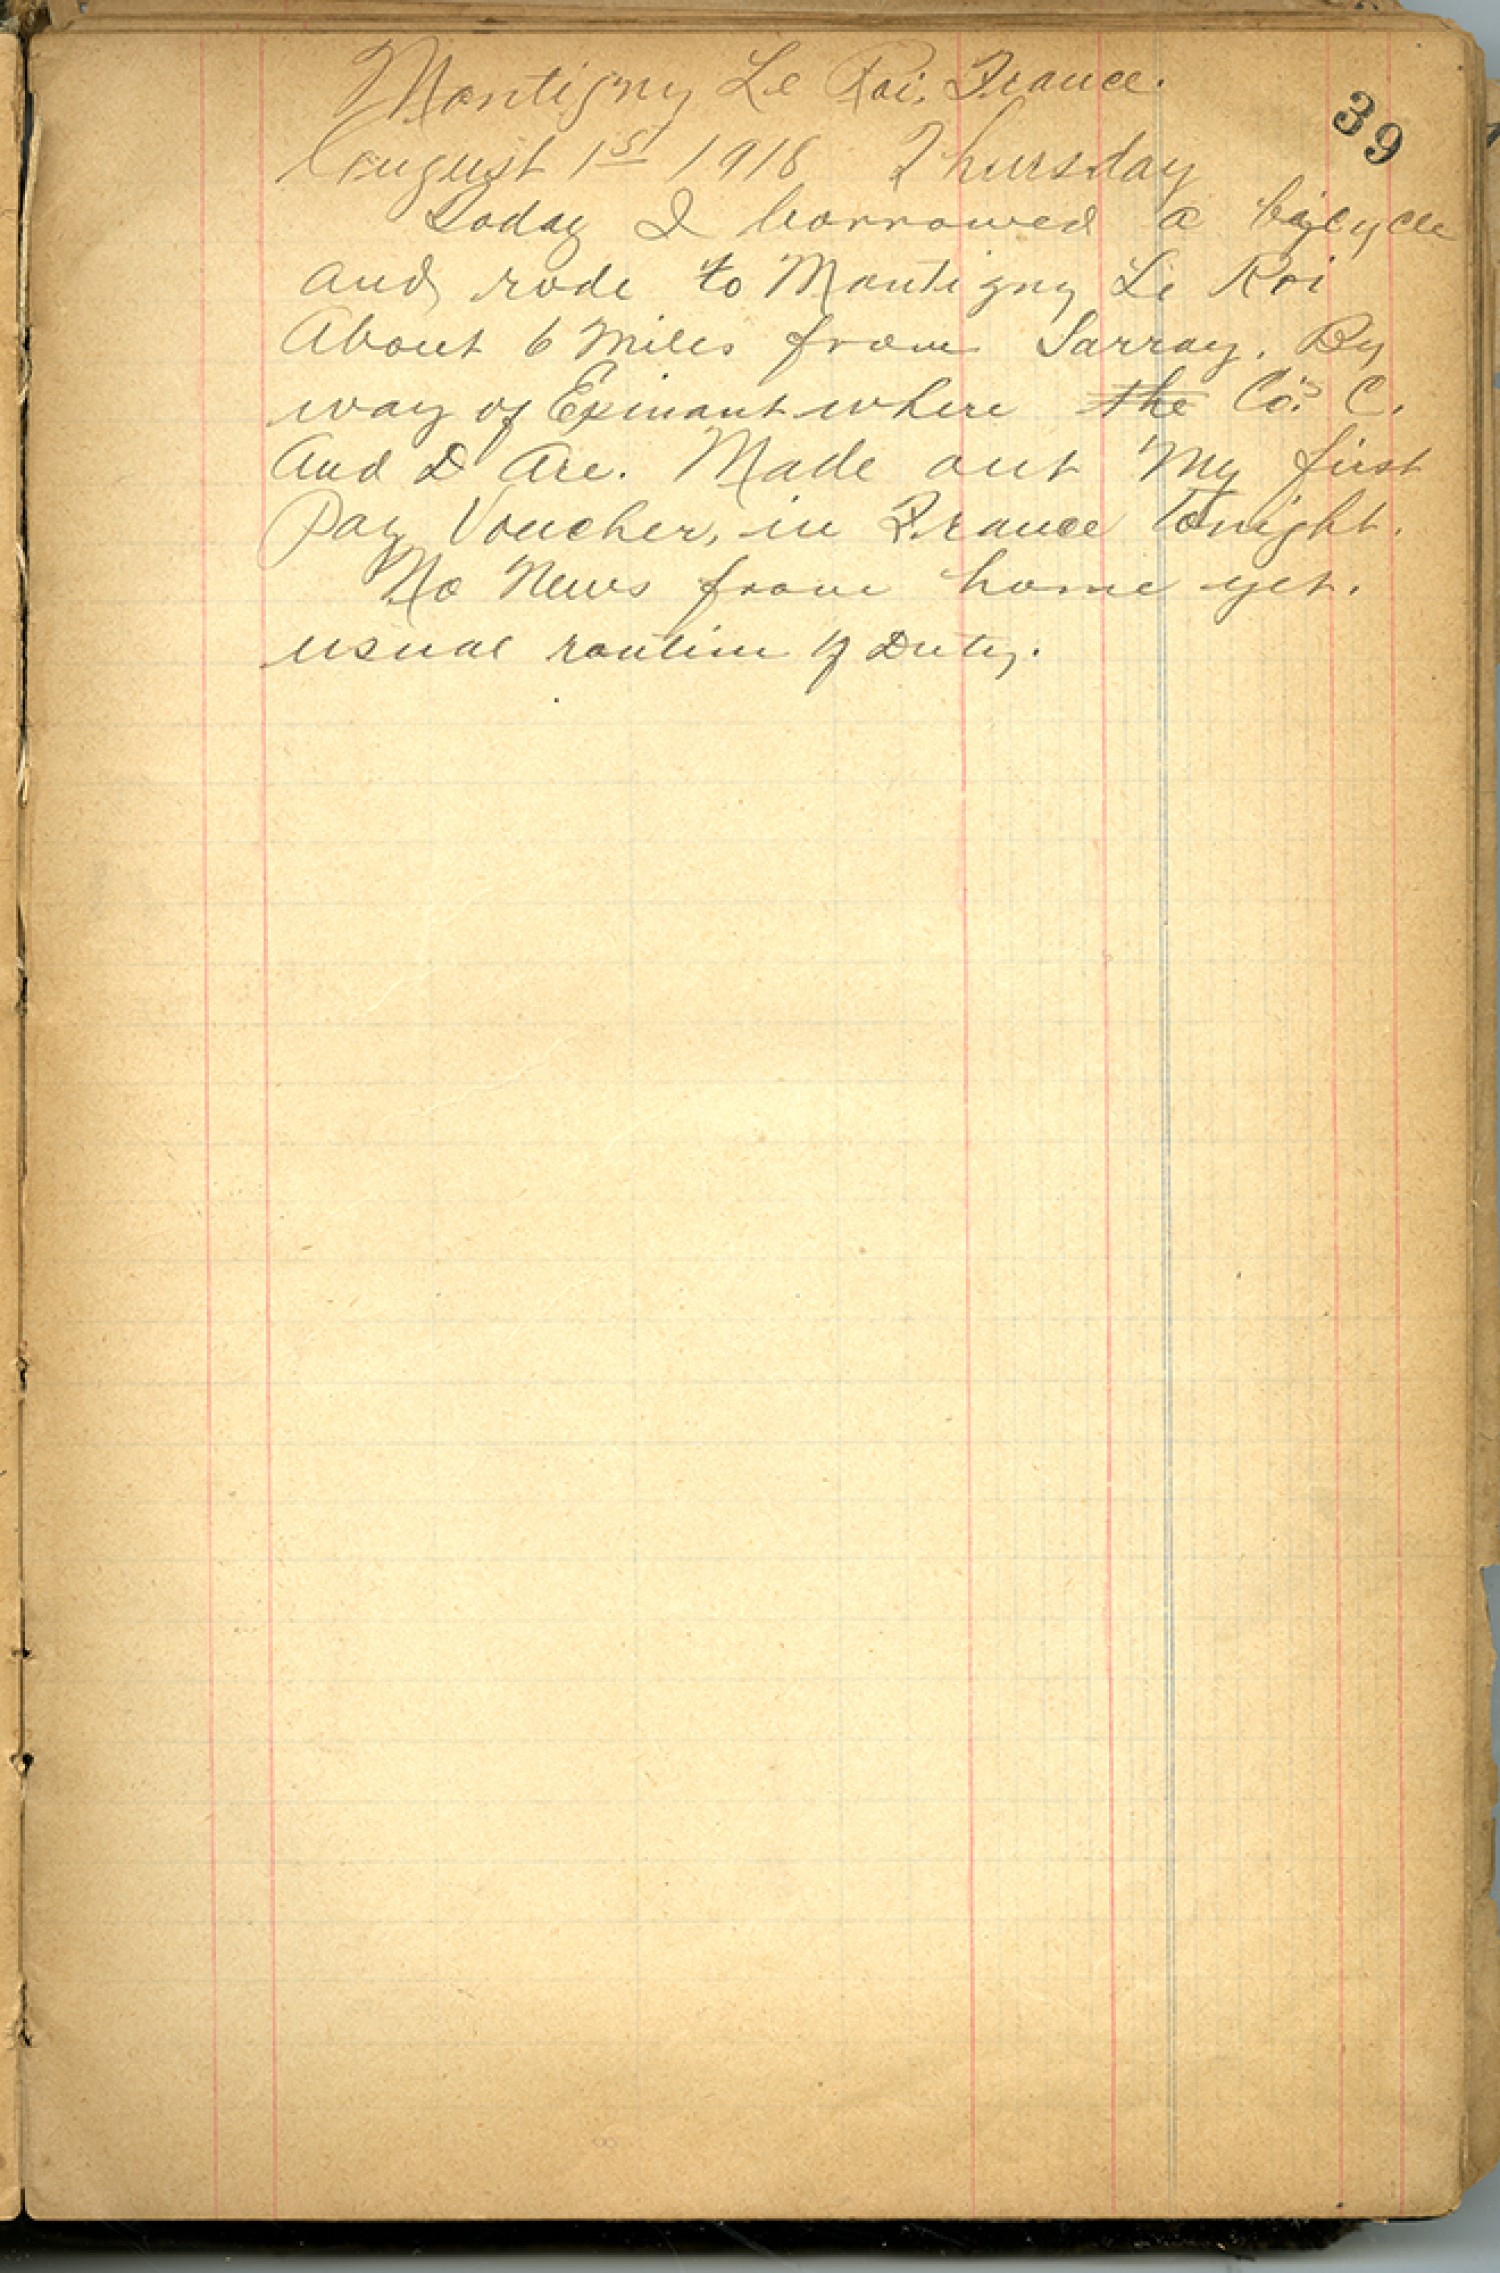 39
Montigny Le Roi, France.
August 1st 1918 Thursday
Today I borrowed a bicycle
and rode to Montigny Le Roi
About 6 Miles from Sarrey. By
way of Epinant where the Co's C.
And D Are. Made out My first
Pay Voucher, in France Tonight.
No News from home yet.
usual routine of Duty.